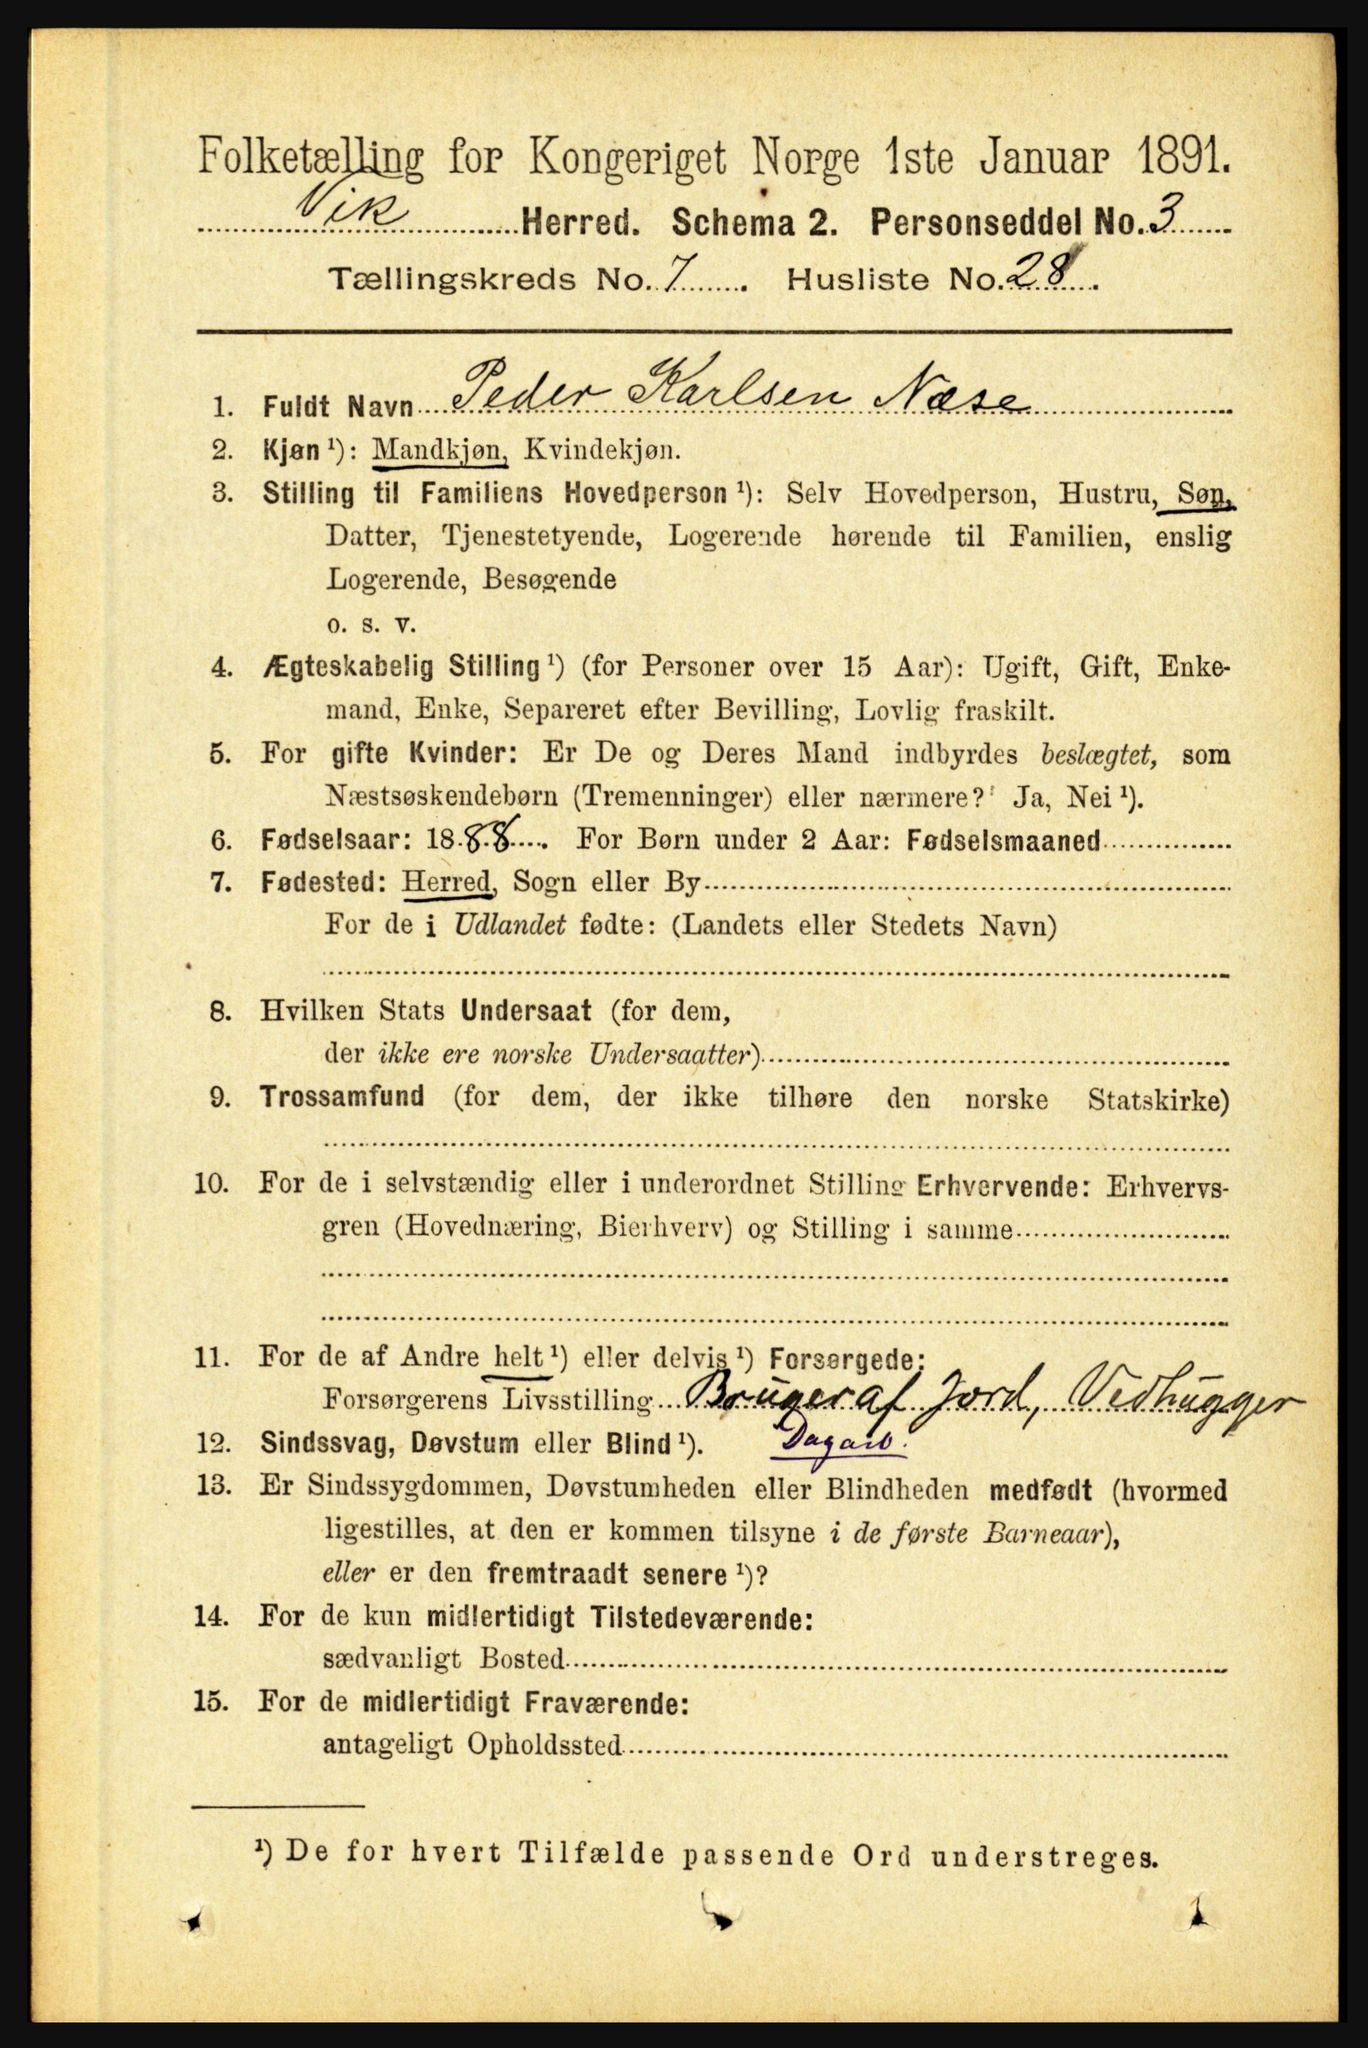 Folketælling for Kongeriget Norge 1ste Januar 1891.
Vik Herred. Schema 2. Personseddel No. 3
Tællingskreds No. 7. Husliste No. 28.
1. Fuldt Navn Peder Karlsen Næse
2. Kjøn ¹): Mandkjøn, Kvindekjøn.
3. Stilling til Familiens Hovedperson ¹): Selv Hovedperson, Hustru, Søn,
Datter, Tjenestetyende, Logerende hørende til Familien, enslig
Logerende, Besøgende
o. s. v.
4. Ægteskabelig Stilling ¹) (for Personer over 15 Aar): Ugift, Gift, Enke-
mand, Enke, Separeret efter Bevilling, Lovlig fraskilt.
5. For gifte Kvinder: Er De og Deres Mand indbyrdes beslægtet, som
Næstsøskendebørn (Tremenninger) eller nærmere? Ja, Nei ¹).
6. Fødselsaar: 1888. For Børn under 2 Aar: Fødselsmaaned
7. Fødested: Herred, Sogn eller By
For de i Udlandet fødte: (Landets eller Stedets Navn)
8. Hvilken Stats Undersaat (for dem,
der ikke ere norske Undersaatter)
9. Trossamfund (for dem, der ikke tilhøre den norske Statskirke)
10. For de i selvstændig eller i underordnet Stilling Erhvervende: Erhvervs-
gren (Hovednæring, Bierhverv) og Stilling i samme
11. For de af Andre helt ¹) eller delvis ¹) Forsørgede:
Forsørgerens Livsstilling Bruger af Jord, Vedhugger
12. Sindssvag, Døvstum eller Blind ¹). Dagarb.
13. Er Sindssygdommen, Døvstumheden eller Blindheden medfødt (hvormed
ligestilles, at den er kommen tilsyne i de første Barneaar),
eller er den fremtraadt senere ¹)?
14. For de kun midlertidigt Tilstedeværende:
sædvanligt Bosted
15. For de midlertidigt Fraværende:
antageligt Opholdssted
¹) De for hvert Tilfælde passende Ord understreges.